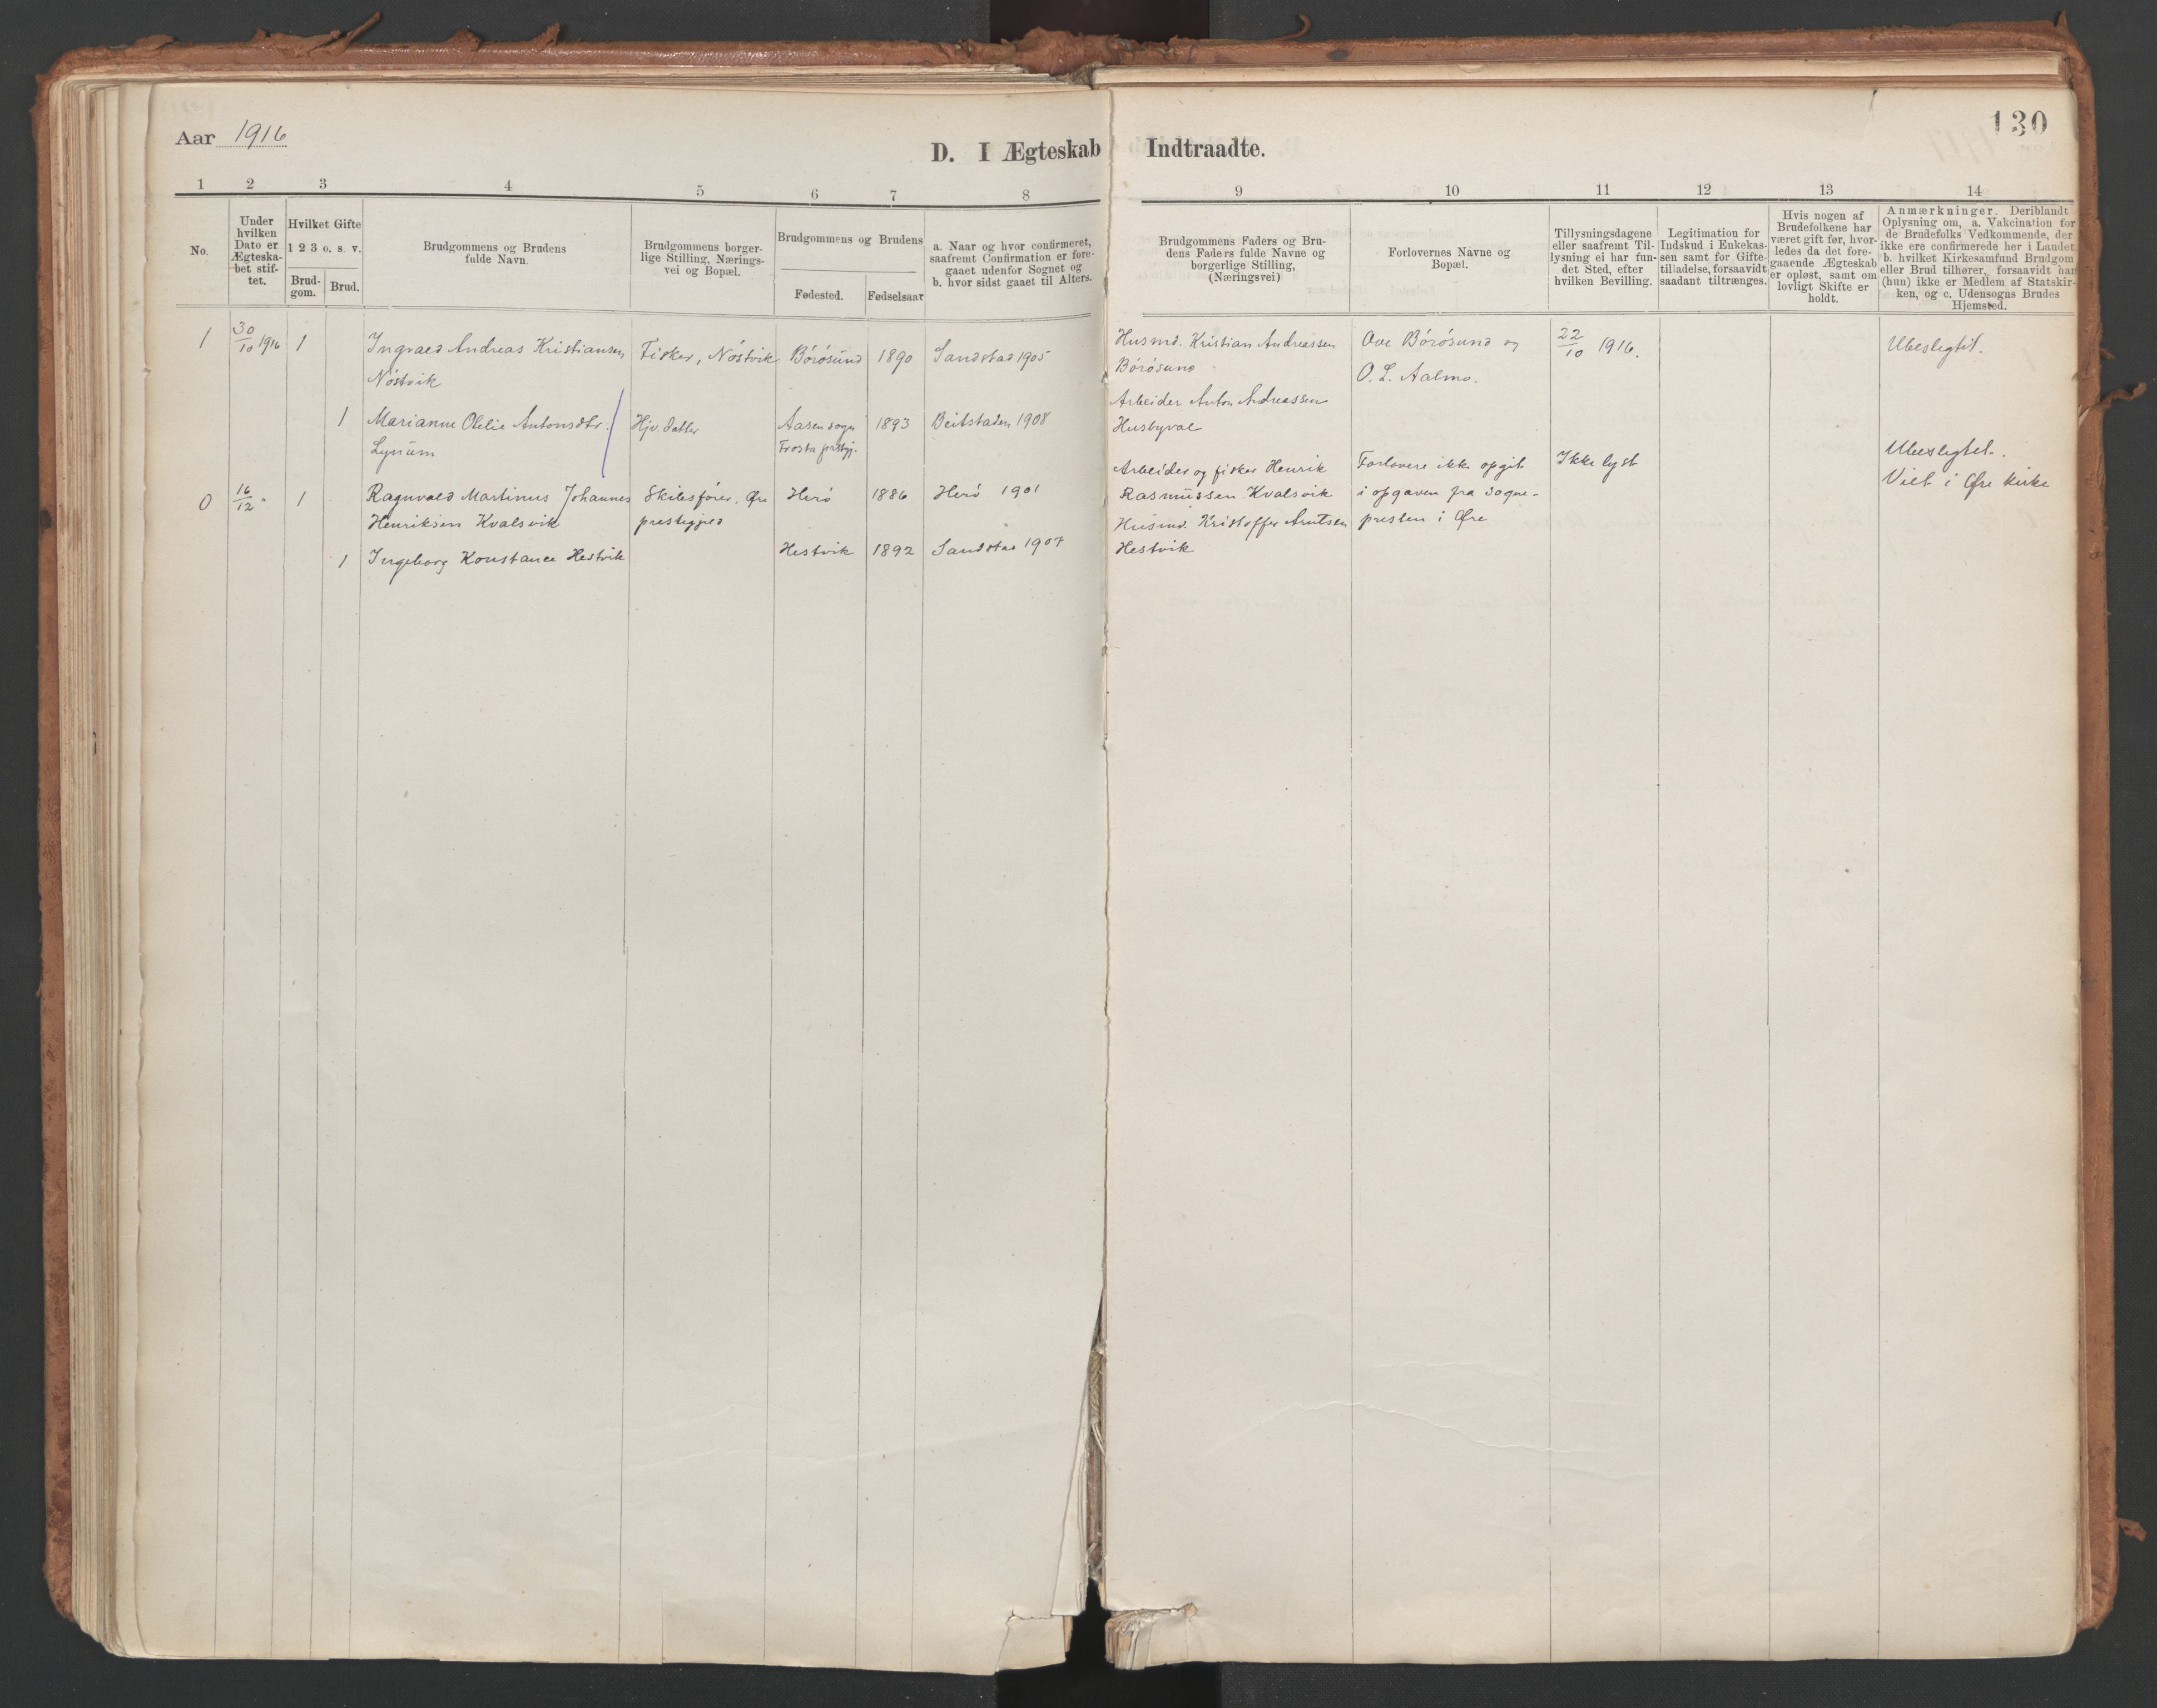 Aar 1916
D. I Ægteskab Indtraadte.
130
1 2 3 4 5 6 7 8 9 10 11 12 13 14
No.
Under
hvilken
Dato er
Ægteska-
bet stif-
tet.
Hvilket Gifte
1 2 3 o. s. v.
Brud-
gom.
Brud.
Brudgommens og Brudens
fulde Navn.
Brudgommens borger-
lige Stilling, Nærings-
vei og Bopæl.
Brudgommens og Brudens
Fødested.
Fødselsaar
a. Naar og hvor confirmeret,
saafremt Confirmation er fore-
gaaet udenfor Sognet og
b. hvor sidst gaaet til Alters.
Brudgommens Faders og Bru-
dens Faders fulde Navne og
borgerlige Stilling,
(Næringsvei)
Forlovernes Navne og
Bopæl.
Tillysningsdagene
eller saafremt Til-
lysning ei har fun-
det Sted, efter
hvilken Bevilling.
Legitimation for
Indskud i Enkekas-
sen samt for Gifte-
tilladelse, forsaavidt
saadant tiltrænges.
Hvis nogen af
Brudefolkene har
været gift før, hvor-
ledes da det fore-
gaaende Ægteskab
er opløst, samt om
lovligt Skifte er
holdt.
Anmærkninger. Deriblandt
Oplysning om, a. Vakcination for
de Brudefolks Vedkommende, der
ikke ere confirmerede her i Landet,
b. hvilket Kirkesamfund Brudgom
eller Brud tilhører, forsaavidt han
(hun) ikke er Medlem af Statskir-
ken, og c. Udensogns Brudes
Hjemsted.
1 30/10 1916 1 Ingvald Andreas Kristiansen
Nöstvik
Fisker, Nöstvik
Börösund
1890
Sandstad 1905
Husmd. Kristian Andreassen
Börösund
Ove Börösund og
O. L. Aalmo.
22/10 1916.
Ubeslegtet.
1 Marianne Olelie Antonsdtr.
Lynum
Hjv. datter
Aasen sogn
Frosta prstgj.
1893
Beitstaden 1908
Arbeider Anton Andreassen
Husbyval
0 16/12 " 1 Ragnvald Martinus Johannes
Henriksen Kvalsvik
Skibsförer, Øre
prestegjeld
Herö
1886
Herö 1901
Arbeider og fisker Henrik
Rasmussen Kvalsvik
Forlovere ikke opgit
i opgaven fra sogne-
presten i Øre
Ikke lyst
Ubeslegtet.
Viet i Øre kirke
1 Ingeborg Konstance Hestvik
Hestvik
1892
Sandstad 1907
Husmd. Kristoffer Arntsen
Hestvik